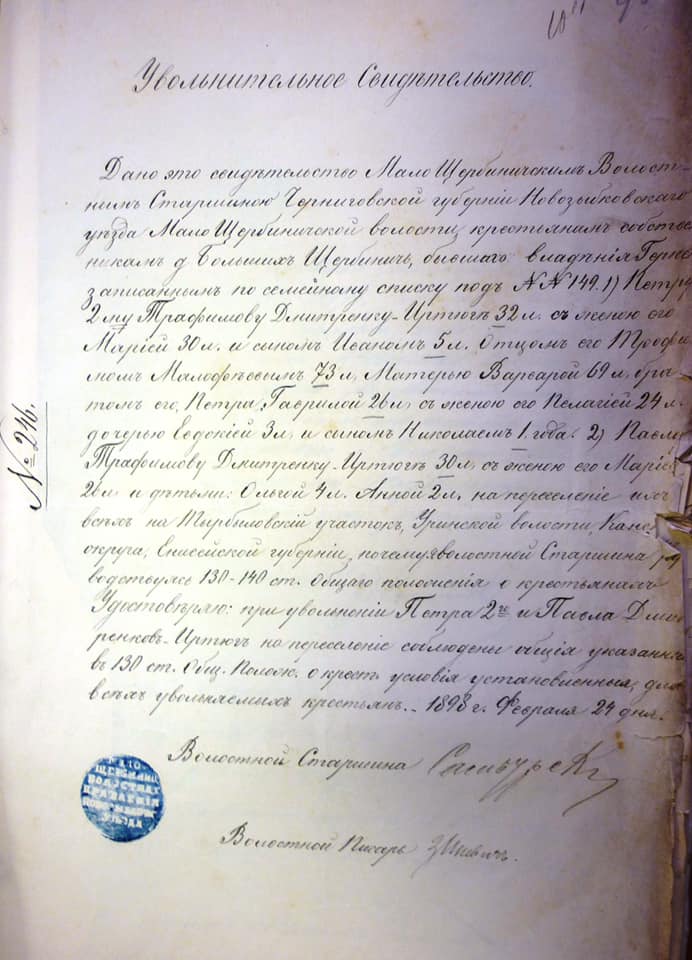 Увольнительное Свидѣтельство.
Дано это свидѣтельство Мало Щербиничскимъ Волост-
нымъ Старшиною Черниговской губерніи Новозыбковскаго
уѣзда Мало Щербиничской волости, крестьянамъ собствен
никамъ д. Большихъ Щербиничь, бывшаго владѣнія
записаннымъ по семейному списку подъ NN 149. 1) Петру
2му Трафимову Дмитренку-Иртюгъ 32 л. съ женою его
Маріей 30 л. и сыномъ Иваномъ 5 л. Отцомъ его Трофи
момъ Малофѣевымъ 73 л, Матерью Варварой 69 л, бра
томъ его, Петра, Гаврилой 26 л, съ женою его Пелагіей 24 л.
дочерью Евдокіей 3 л, и сыномъ Николаемъ 1. года. 2) Павлу
Трафимову Дмитренку-Иртюгъ 30 л, съ женою его Маріей
26 л и дѣтьми: Ольгой 4 л. Анной 2 л. на переселеніе ихъ
всѣхъ на Тырбыловскій участокъ, Уринской волости, Канск
округа, Енисейской губерніи, почему я волостной Старшина ру
водствуясь 130-140 ст. Общаго положенія о крестьянахъ
Удостовѣряю: при увольненіи Петра 2го и Павла Дмит
ренковъ-Иртюгъ на переселеніе соблюдены общія указанныя
въ 130 ст. Общ. Полож. о крест. условія установленныя, для
всѣхъ увольняемыхъ крестьянъ. - 1898 г. Февраля 24 дня.
№ 246.
Волостной Старшина
МАЛО-
ЩЕРБИНИЦ
ВОЛОСТНАГО
ПРАВЛЕНІЯ
НОВОЗЫБКОВ
УѢЗДА
Волостной Писарь